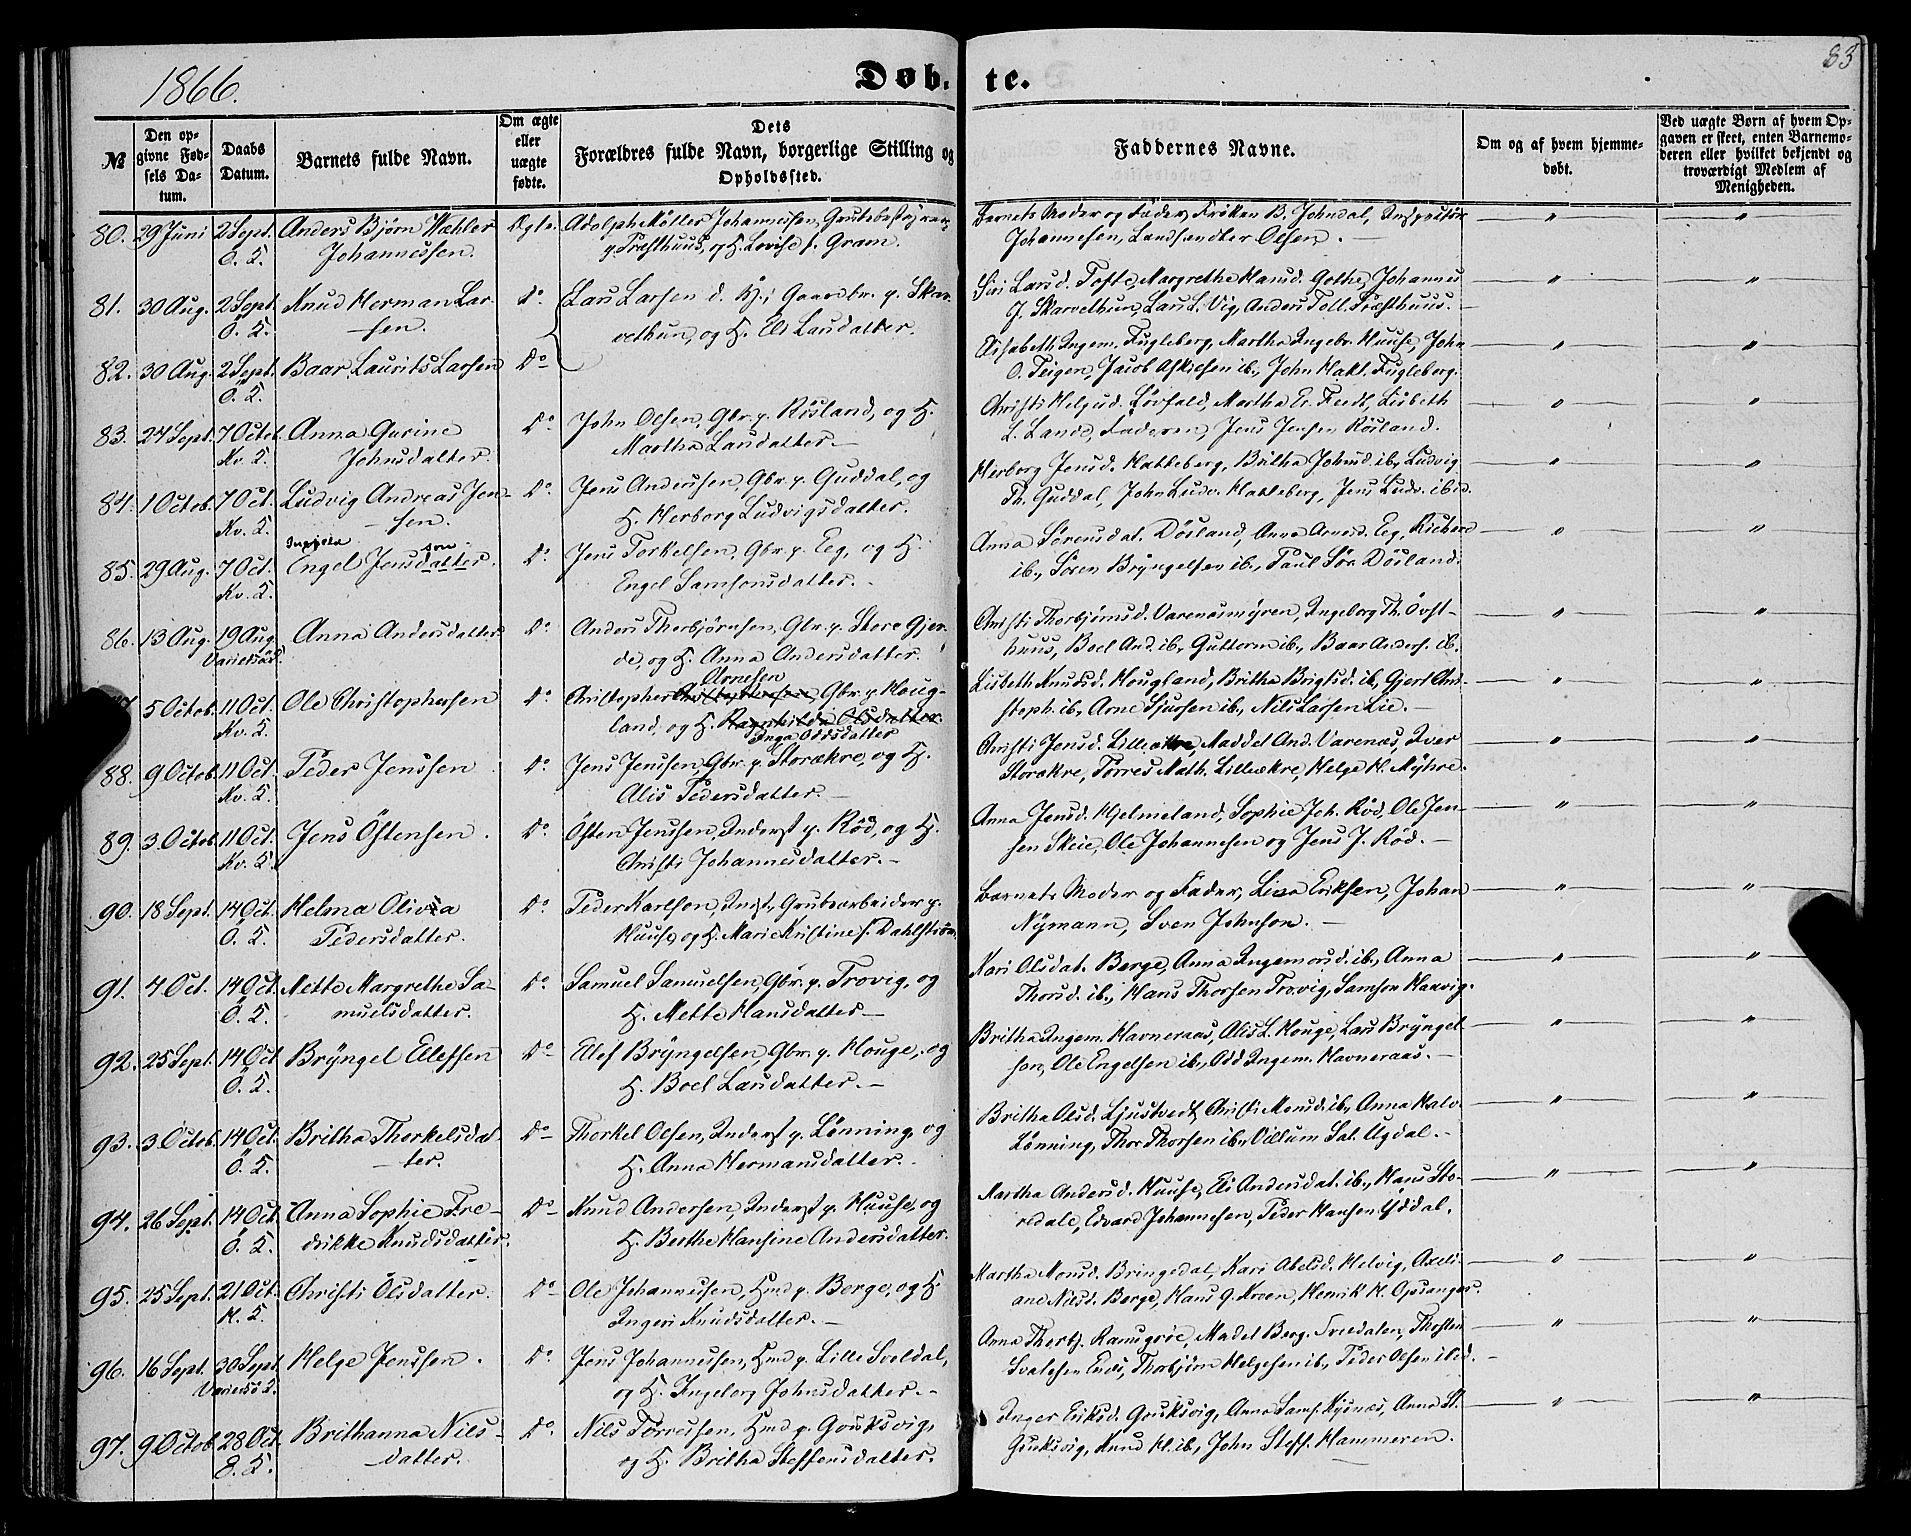 1866.
Døbte.
83
№
Den opgivne Fødsels Datum.
Daabs Datum.
Barnets fulde Navn.
Om ægte eller uægte fødte.
Dets Forældres fulde Navn, borgerlige Stilling og Opholdssted.
Faddernes Navne.
Om og af hvem hjemmedøbt.
Ved uægte Børn af hvem Opgaven er skeet, enten Barnemoderen eller hvilket bekjendt og troværdigt Medlem af Menigheden.
80. 29 Juni 2 Sept. Ö. K. Anders Bjørn Wæhler Johannessen. Ægte. Adolph Møller Johannessen, p. Præsthuus, og H. Lovise f. Gram. Barnets Moder og Fader, Frøken B. Johndal,
Johannesen, Landhandler Olsen. — " "
81. 30 Aug. 2 Sept. Ö. K. Knud Herman Larsen. Do Lars Larsen d. Y., Gaardbr. p. Skarvethun, og H. Eli Larsdatter. Siri Larsd. Tofte, Margrethe Hansd. Gothe, Johannes
J. Skarvethun, Lars L. Vig, Anders Toll. Præsthuus. — " "
82. 30 Aug. 2 Sept. Ö. K. Baar Laurits Larsen Do Elisabeth Ingem. Fugleberg, Martha Ingebr. Huuse, John
O. Teigen, Jacob ib., John Hakl. Fugleberg. " "
83. 24 Sept. 7 Octob. Kv. K. Anna Gurine Johnsdatter. Do John Olsen, Gbr. p. Røsland, og H. Martha Larsdatter. — Christi Helgesd. Løvfald, Martha Er. Feet, Lisbeth
L. Lande, Faderen, Jens Jensen Røsland. " "
84. 1 Octob. 7 Oct. Kv. K. Ludvig Andreas Jensen. Do Jens Anderssen, Gbr. p. Guddal, og H. Herborg Ludvigsdatter. Herborg Jensd. Hatteberg, Britha Johnsd. ib., Ludvig
Th. Guddal, John Ludv. Hatteberg, Jens Ludv. ibid. " "
85. 29 Aug. 7 Oct. Kv. K. Engel Jensdatter. son Do Jens Torkelsen, Gbr. p. Eeg, og H. Engel Samsonsdatter. Anna Sørensdat. Døsland, Anna Arnesd. Eeg, Rich
ib., Søren Bryngelsen ib., Paul Sør. Døsland. " "
86. 13 Aug. 19 Aug. Anna Andersdatter Do Anders Thorbjørnsen, Gbr. p. Store Gjerde, og H. Anna Andersdatter. Christi Thorbjørnsd. Varenæsmyren, Ingeborg Th. Øvsthuus, Boel And. ib., Guttorm ib., Baar Anders. ib. " "
5 Octob. 11 Oct. Kv. K. Ole Christophersen Do Christopher Arnesen, Gbr. p. Hougland, og H. Ragnhilda Olsdatter Inga Oddsdatter Lisbeth Knudsd. Hougland, Britha Brigtsd. ib., Gjert Christoph. ib., Arne Sjursen ib., Nils Larsen Lie. — " "
88. 9 Octob. 11 Oct. Kv. K. Peder Jenssen Do Jens Jenssen, Gbr. p. Storækre, og H. Alis Pedersdatter. — Christi Jensd. Lilleækre, Maddel And. Varenæs, Iver
Storækre, Torres Math. Lilleækre, Helge H. Myhre. " "
89. 3 Octob. 11 Oct. Kv. K. Jens Östensen. Do Östen Jenssen, Inderst p. Rød, og H. Christi Johannesdatter. — Anna Jensd. Hjelmeland, Sophie Joh. Rød, Ole Jensen Skeie, Ole Johannesen og Jens J. Rød. — " "
90. 18 Sept. 14 Oct. Ö. K. Helma Olivia Pedersdatter. Do Peder Karlson, Indst., Grubearbeider p. Huuse, og H. Marie Kristine f. Dahlström. Barnets Moder og Fader, Lisa Eriksen, Johan
Nymann, Sven Johnson. — " "
91. 4 Oct. 14 Oct. Ö. K. Mette Margrethe Samuelsdatter. Do Samuel Samuelsen, Gbr. p. Trovig, og H. Mette Hansdatter. — Kari Olsdat. Berge, Anna Ingemorsd. ib., Anna
Thorsd. ib., Hans Thorsen Trovig, Samson Haavig. " "
92. 25 Sept. 14 Oct. Ö. K. Bryngel Ellefsen Do Elef Bryngelsen, Gbr. p. Houge, og H. Boel Larsdatter. — Britha Ingem. Havneraas, Alis L. Houge, Lars Bryngelsen, Ole Engelsen ib., Odd Ingem. Havneraas. — " "
93. 3 Octob. 14 Oct. Ö. K. Britha Thorkelsdatter. Do Thorkel Olsen, Inderst p. Lønning, og H. Anna Hermansdatter. Britha Olsd. Ljustvedt, Christi Monsd. ib., Anna Halv.
Lønning, Thor Thorsen ib., Villum Sal. Ugdal. — " "
94. 26 Sept. 14 Oct. Ö. K. Anna Sophie Fredrikke Knudsdatter. Do Knud Andersen, Inderst p. Huuse, og H. Berthe Hansine Andersdatter. Martha Andersd. Huuse, Eli Andersdat. ib., Hans Storedale, Edvard Johannesen, Peder Hansen Ysdal. " "
95. 25 Sept. 21 Oct. H. K. Christi Olsdatter. Do Ole Johannessen, Hmd p. Berge, og H. Ingeri Knudsdatter. — Martha Monsd. Bringedal, Kari Abelsd. Helvig, Axeliane Nilsd. Berge, Hans G. Kroen, Henrik H. Opsanger. " "
96. 16 Sept. 30 Sept. Helge Jenssen. Do Jens Johannessen, Hmd p. Lille Sveldal, og H. Ingeborg Johnsdatter. — Anna Thorbj. Ramsgrøe, Madel Berg. Tveedalen, Thosten
Svalesen Enæs, Thorbjørn Helgesen ib., Peder Olsen ibid. " "
97. 9 Octob. 28 Oct. Ö. K. Brithanna Nilsdatter. Do Nils Torressen, Hmd p. Gouksvig, og H. Britha Steffensdatter. Inger Eriksd. Gouksvig, Anna Sams. Kysnæs, Anna St.
Gouksvig, Knud H. ib., John Steff. Hammeren. " "